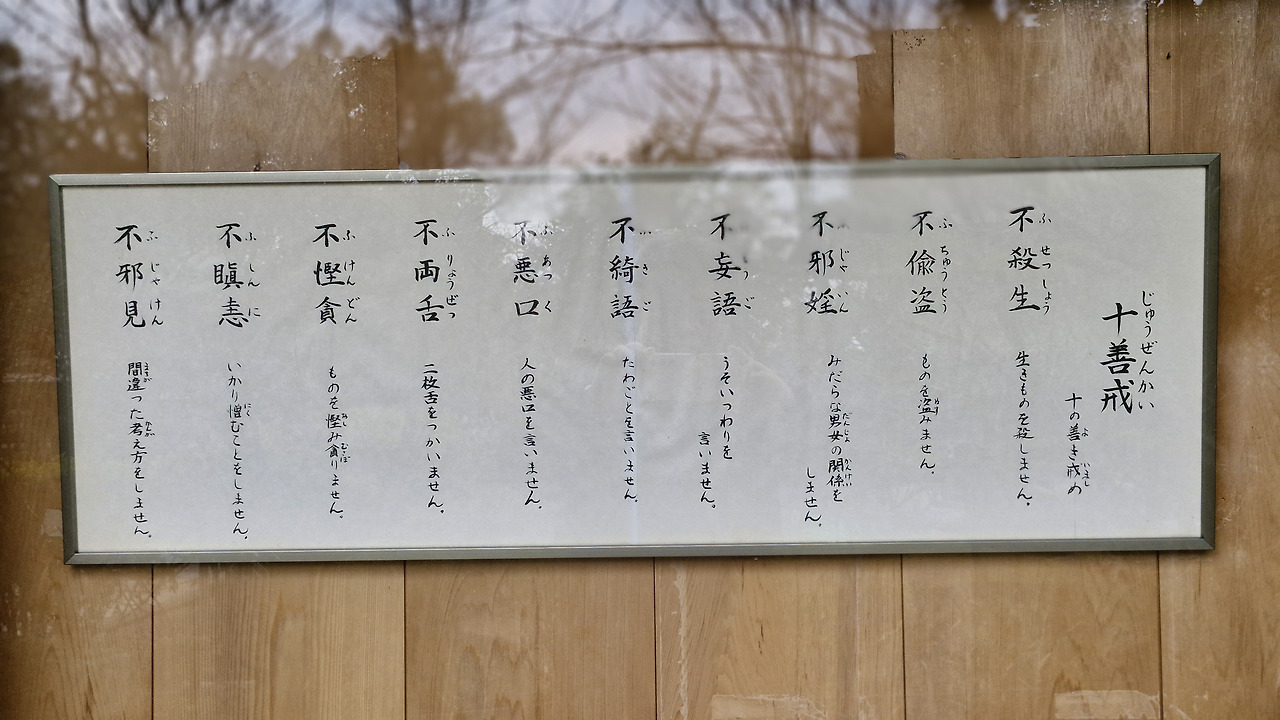 十善戒
じゅうぜんかい
十の善き戒め
よ いまし
不殺生
ふ せっ しょう
生きものを殺しません。
不偸盗
ふ ちゅう とう
ものを盗みません。
ぬす
不邪婬
ふ じゃ いん
みだらな男女の関係を
だんじょ かんけい
しません。
不妄語
うそいつわりを
言いません。
不綺語
ふ き ご
たわごとを言いません。
不悪口
ふ あっ く
人の悪口を言いません。
不両舌
ふ りょう ぜつ
二枚舌をつかいません。
不慳貪
ふ けん どん
ものを慳み貪りません。
おし むさぼ
不瞋恚
ふ しん に
いかり憎むことをしません。
にく
不邪見
ふ じゃ けん
間違った考え方をしません。
まちが かんが